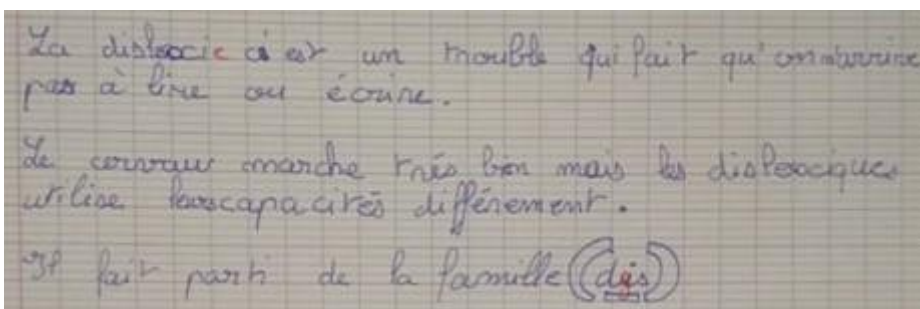 La dislexcie c'est un trouble qui fait qu'on n'arrive
pas à lire ou écrire.
Le cerveau marche très bien mais les dislexciques
utilise leurs capacités différement.
Il fait parti de la famille (dys)